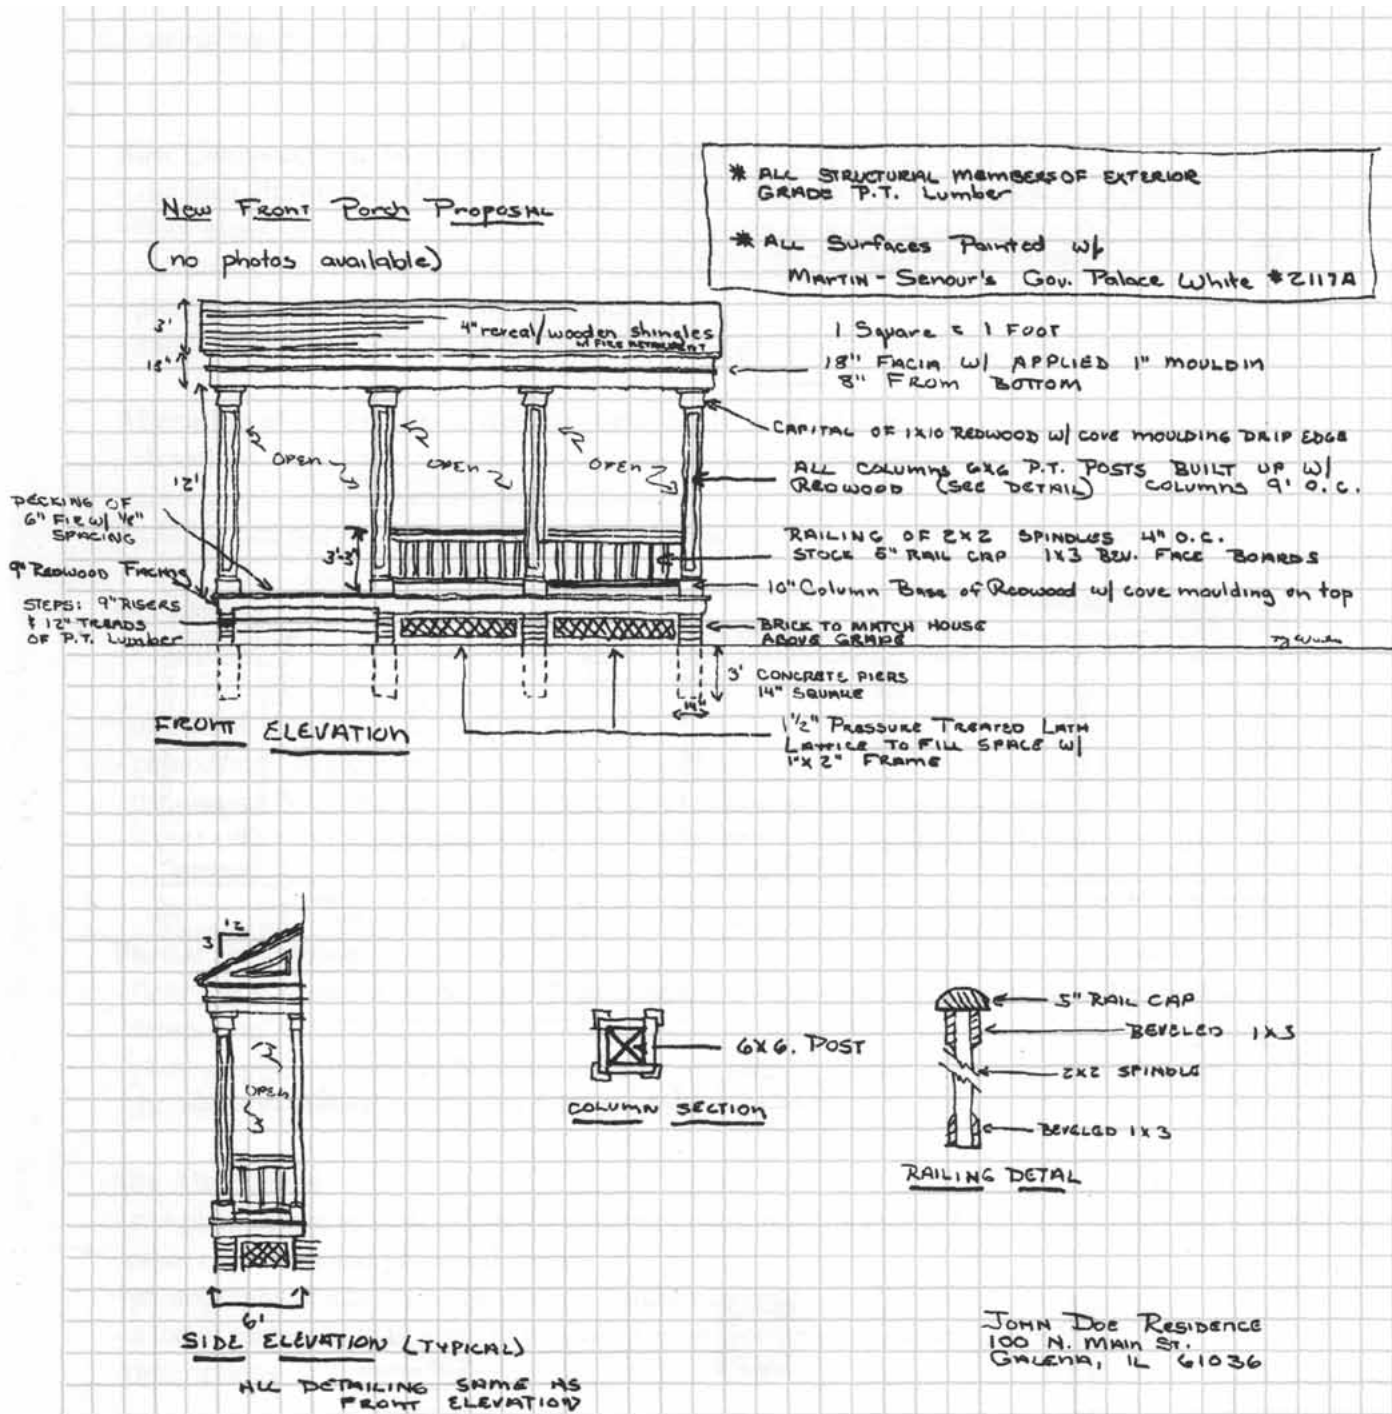 * ALL STRUCTURAL MEMBERS OF EXTERIOR
GRADE P.T. Lumber
* ALL Surfaces Painted w/
MARTIN-Senour's Gov. Palace White #2117A
New Front Porch Proposal
(no photos available)
3'
4" reveal/wooden shingles
w/ FIRE RETARDENT
18"
1 Square = 1 FOOT
18" FACIA W/ APPLIED 1" MOULDIN
8" FROM BOTTOM
CAPITAL OF 1X10 REDWOOD W/ COVE MOULDING DRIP EDGE
OPEN
OPEN
OPEN
ALL COLUMNS 6X6 P.T. POSTS BUILT UP W/
REDWOOD (SEE DETAIL) COLUMNS 9' O.C.
12'
DECKING OF
6" FIR W/ 1/8"
SPACING
3'-3"
RAILING OF 2X2 SPINDLES 4" O.C.
STOCK 5" RAIL CAP 1X3 BEV. FACE BOARDS
9" REDWOOD FACING
10" Column Base of Redwood w/ cove moulding on top
STEPS: 9" RISERS
& 12" TREADS
OF P.T. Lumber
BRICK TO MATCH HOUSE
ABOVE GRADE
3' CONCRETE PIERS
14" SQUARE
14"
FRONT ELEVATION
1 1/2" PRESSURE TREATED LATH
LATTICE TO FILL SPACE W/
1"X2" FRAME
12
3
OPEN
6'
SIDE ELEVATION (TYPICAL)
ALL DETAILING SAME AS
FRONT ELEVATION
6X6. POST
COLUMN SECTION
5" RAIL CAP
BEVELED 1X3
2X2 SPINDLE
BEVELED 1X3
RAILING DETAL
JOHN DOE RESIDENCE
100 N. MAIN ST.
GALENA, IL 61036